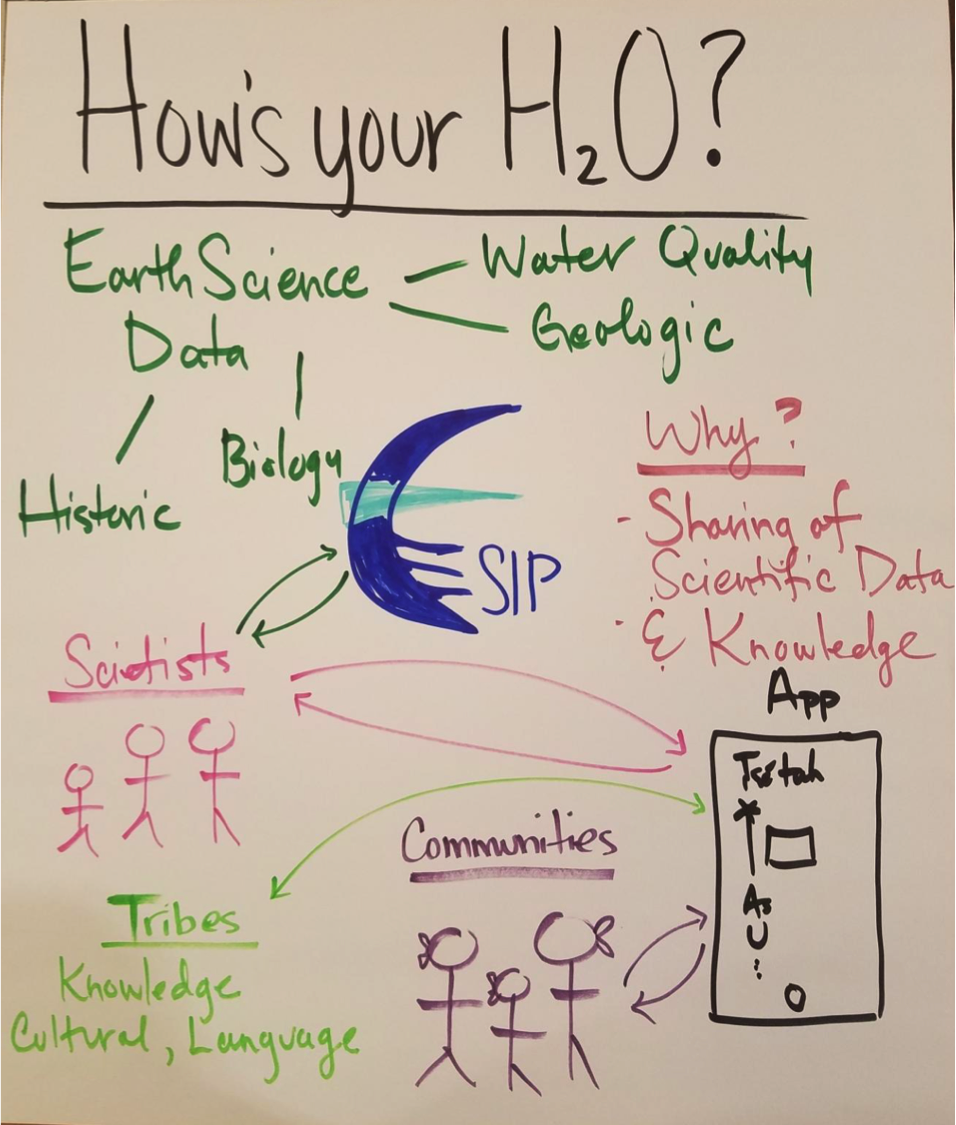 How's your H₂O?
Earth Science
Data
Water Quality
Geologic
Historic
Biology
ESIP
Why?
- Sharing of
Scientific Data
- & Knowledge
Scietists
App
As
U
:
Communities
Tribes
Knowledge
Cultural, Language